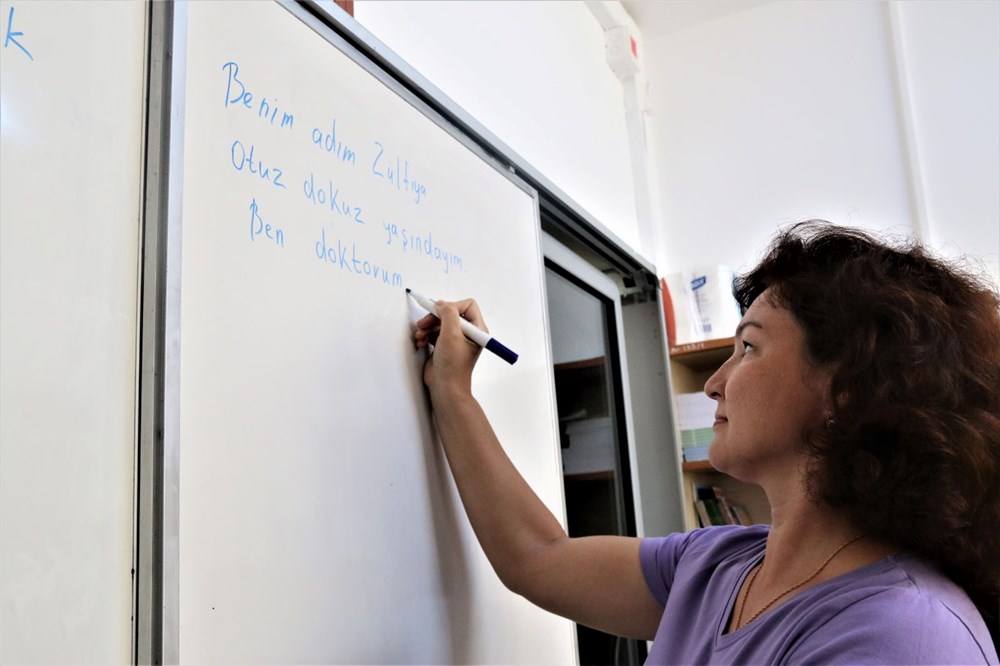 k
Benim adım Zulfiya
Otuz dokuz yaşındayım.
Ben doktorum